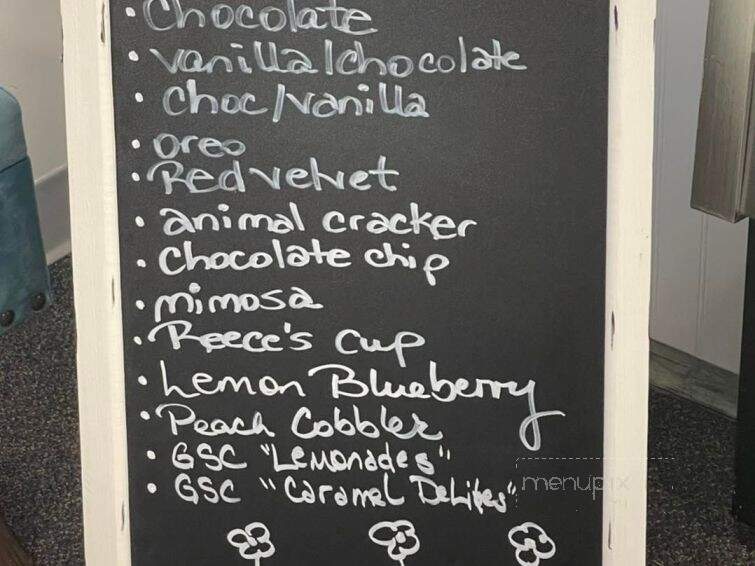 • Chocolate
• vanilla/chocolate
• choc/vanilla
• oreo
• Red velvet
• animal cracker
• Chocolate chip
• mimosa
• Reece's Cup
• Lemon Blueberry
• Peach Cobbler
• GSC "Lemonades"
• GSC "Caramel DeLites"
menupix